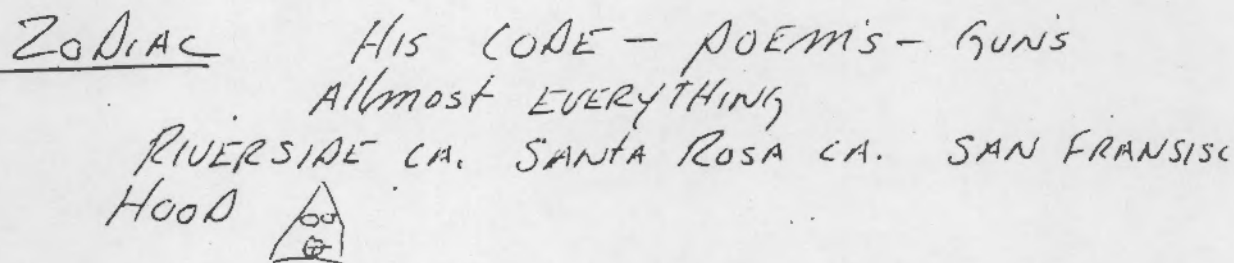 ZODIAC HIS CODE - POEM'S - GUNS
AllmosT EVERYTHING
RIVERSIDE CA. SANTA ROSA CA. SAN FRANSISC
HOOD